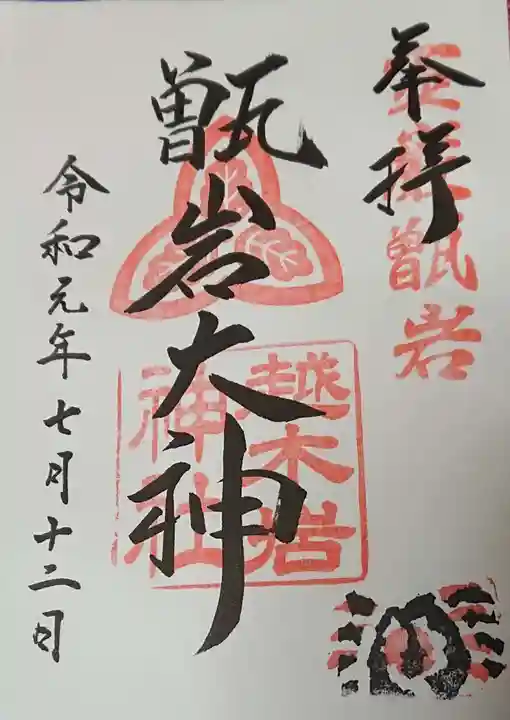 奉拝
甑岩
甑岩大神
越木岩
神社
令和元年七月十二日